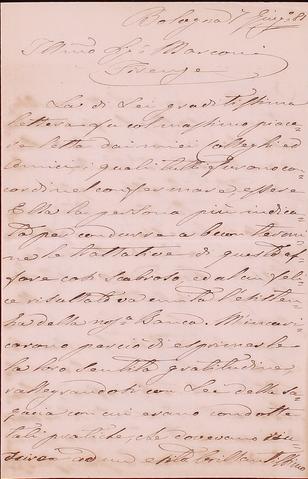 Bologna 7
Illmo Sigr Marconi
Firenze
La di Lei graditissima
lettera fu col massimo piace
re letta dai miei colleghi ed
amici, i quali tutti furono con
cordi nel confermare, essere
Ella la persona più indica
ta per condurre a buon termi
ne le trattative di questo af
fare così scabroso, ed al cui feli
ce risultato va unita l'esisten
za della nosa Banca. M'incari
carono perciò di esprimerle
la loro sentita gratitudine,
rallegrandosi con Lei della sa
gacia con cui erano condotte
tali pratiche, che dovevano
ad un esito brillantissimo